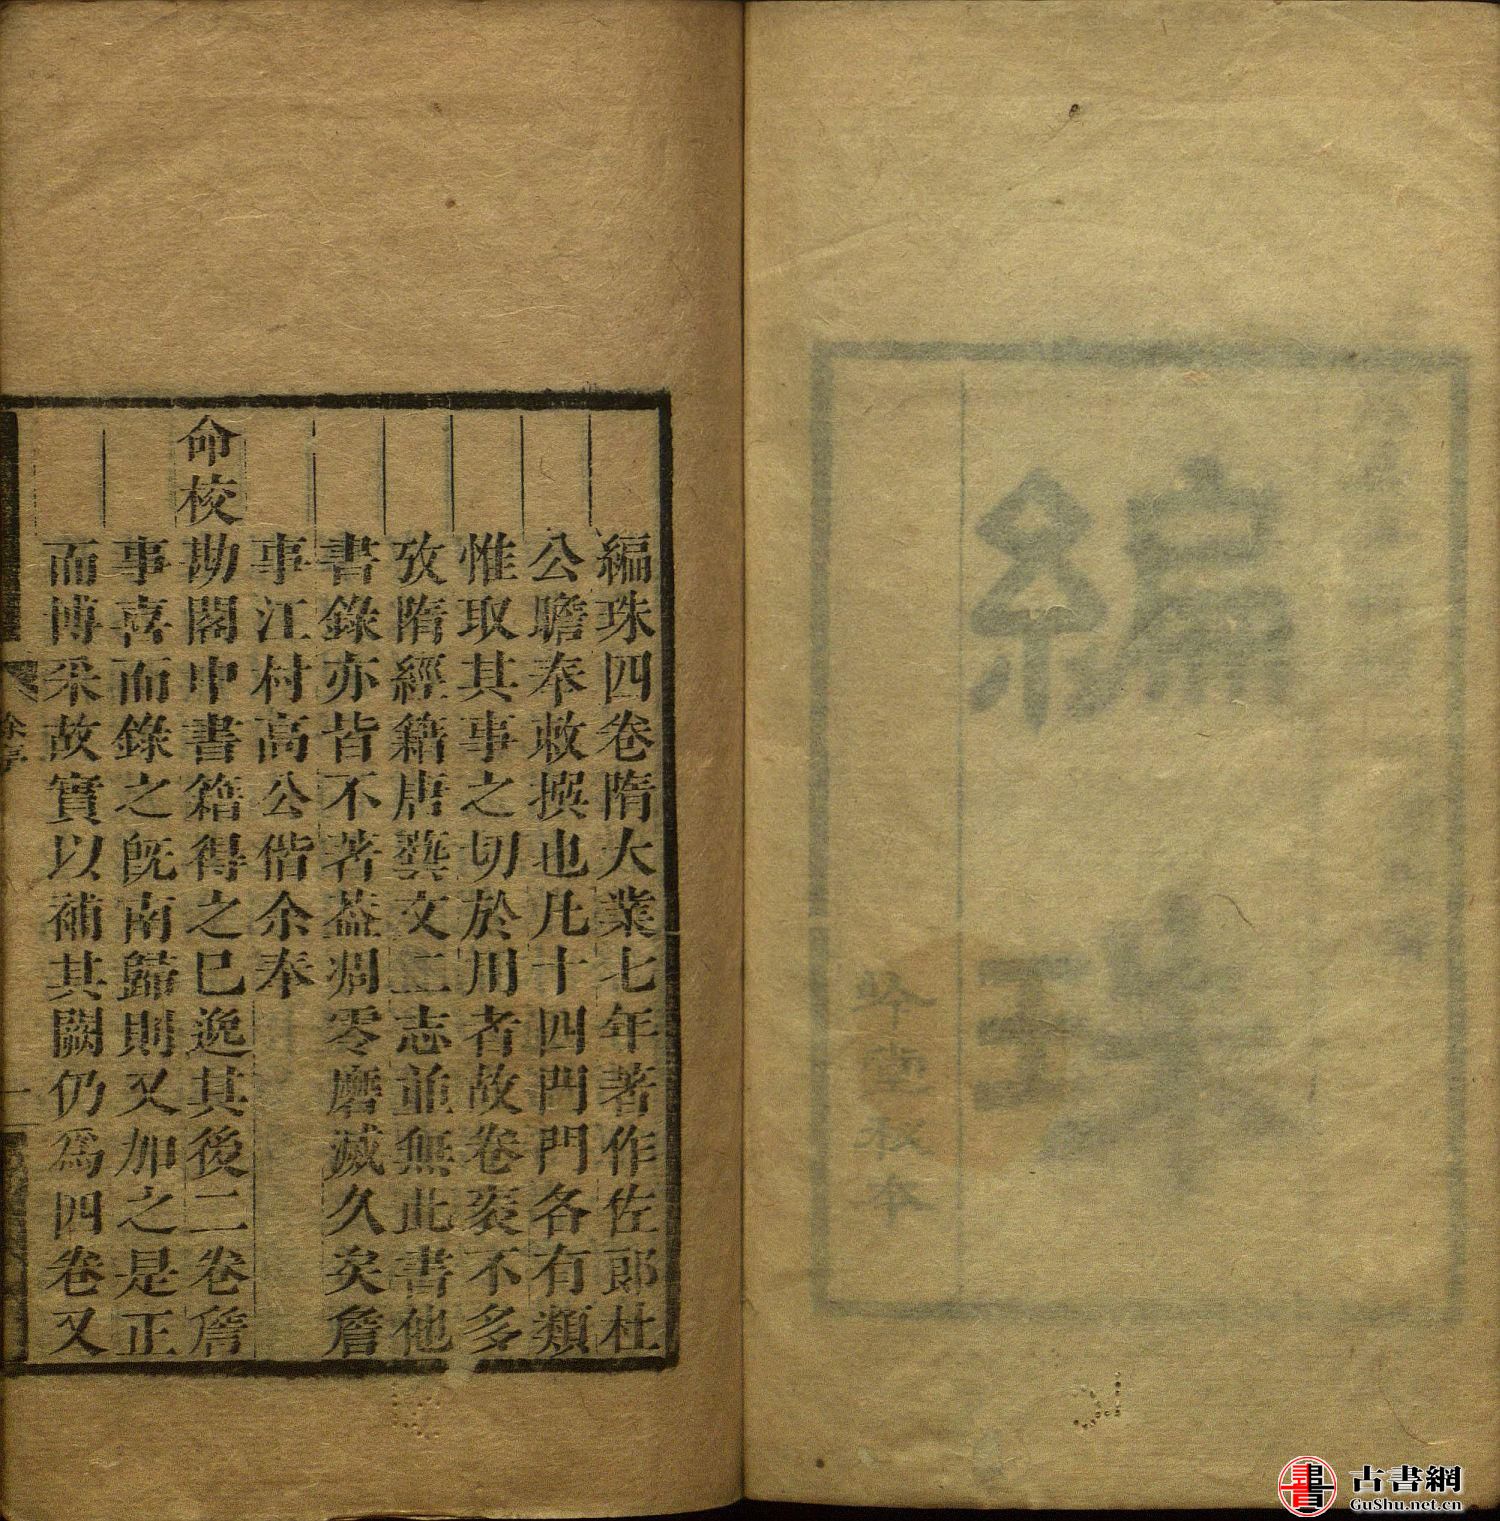 編珠
吟窻秘本
編珠四卷隋大業七年著作佐郎杜
公瞻奉敕撰也凡十四門門各有類
惟取其事之切於用者故卷袠不多
攷隋經籍唐藝文二志並無此書他
書錄亦皆不著葢凋零磨滅久矣詹
事江村高公偕余奉
命校勘閣中書籍得之已逸其後二卷詹
事喜而錄之旣南歸則又加之是正
而博采故實以補其闕仍爲四卷又
徐序
一
古書網
GuShu.net.cn